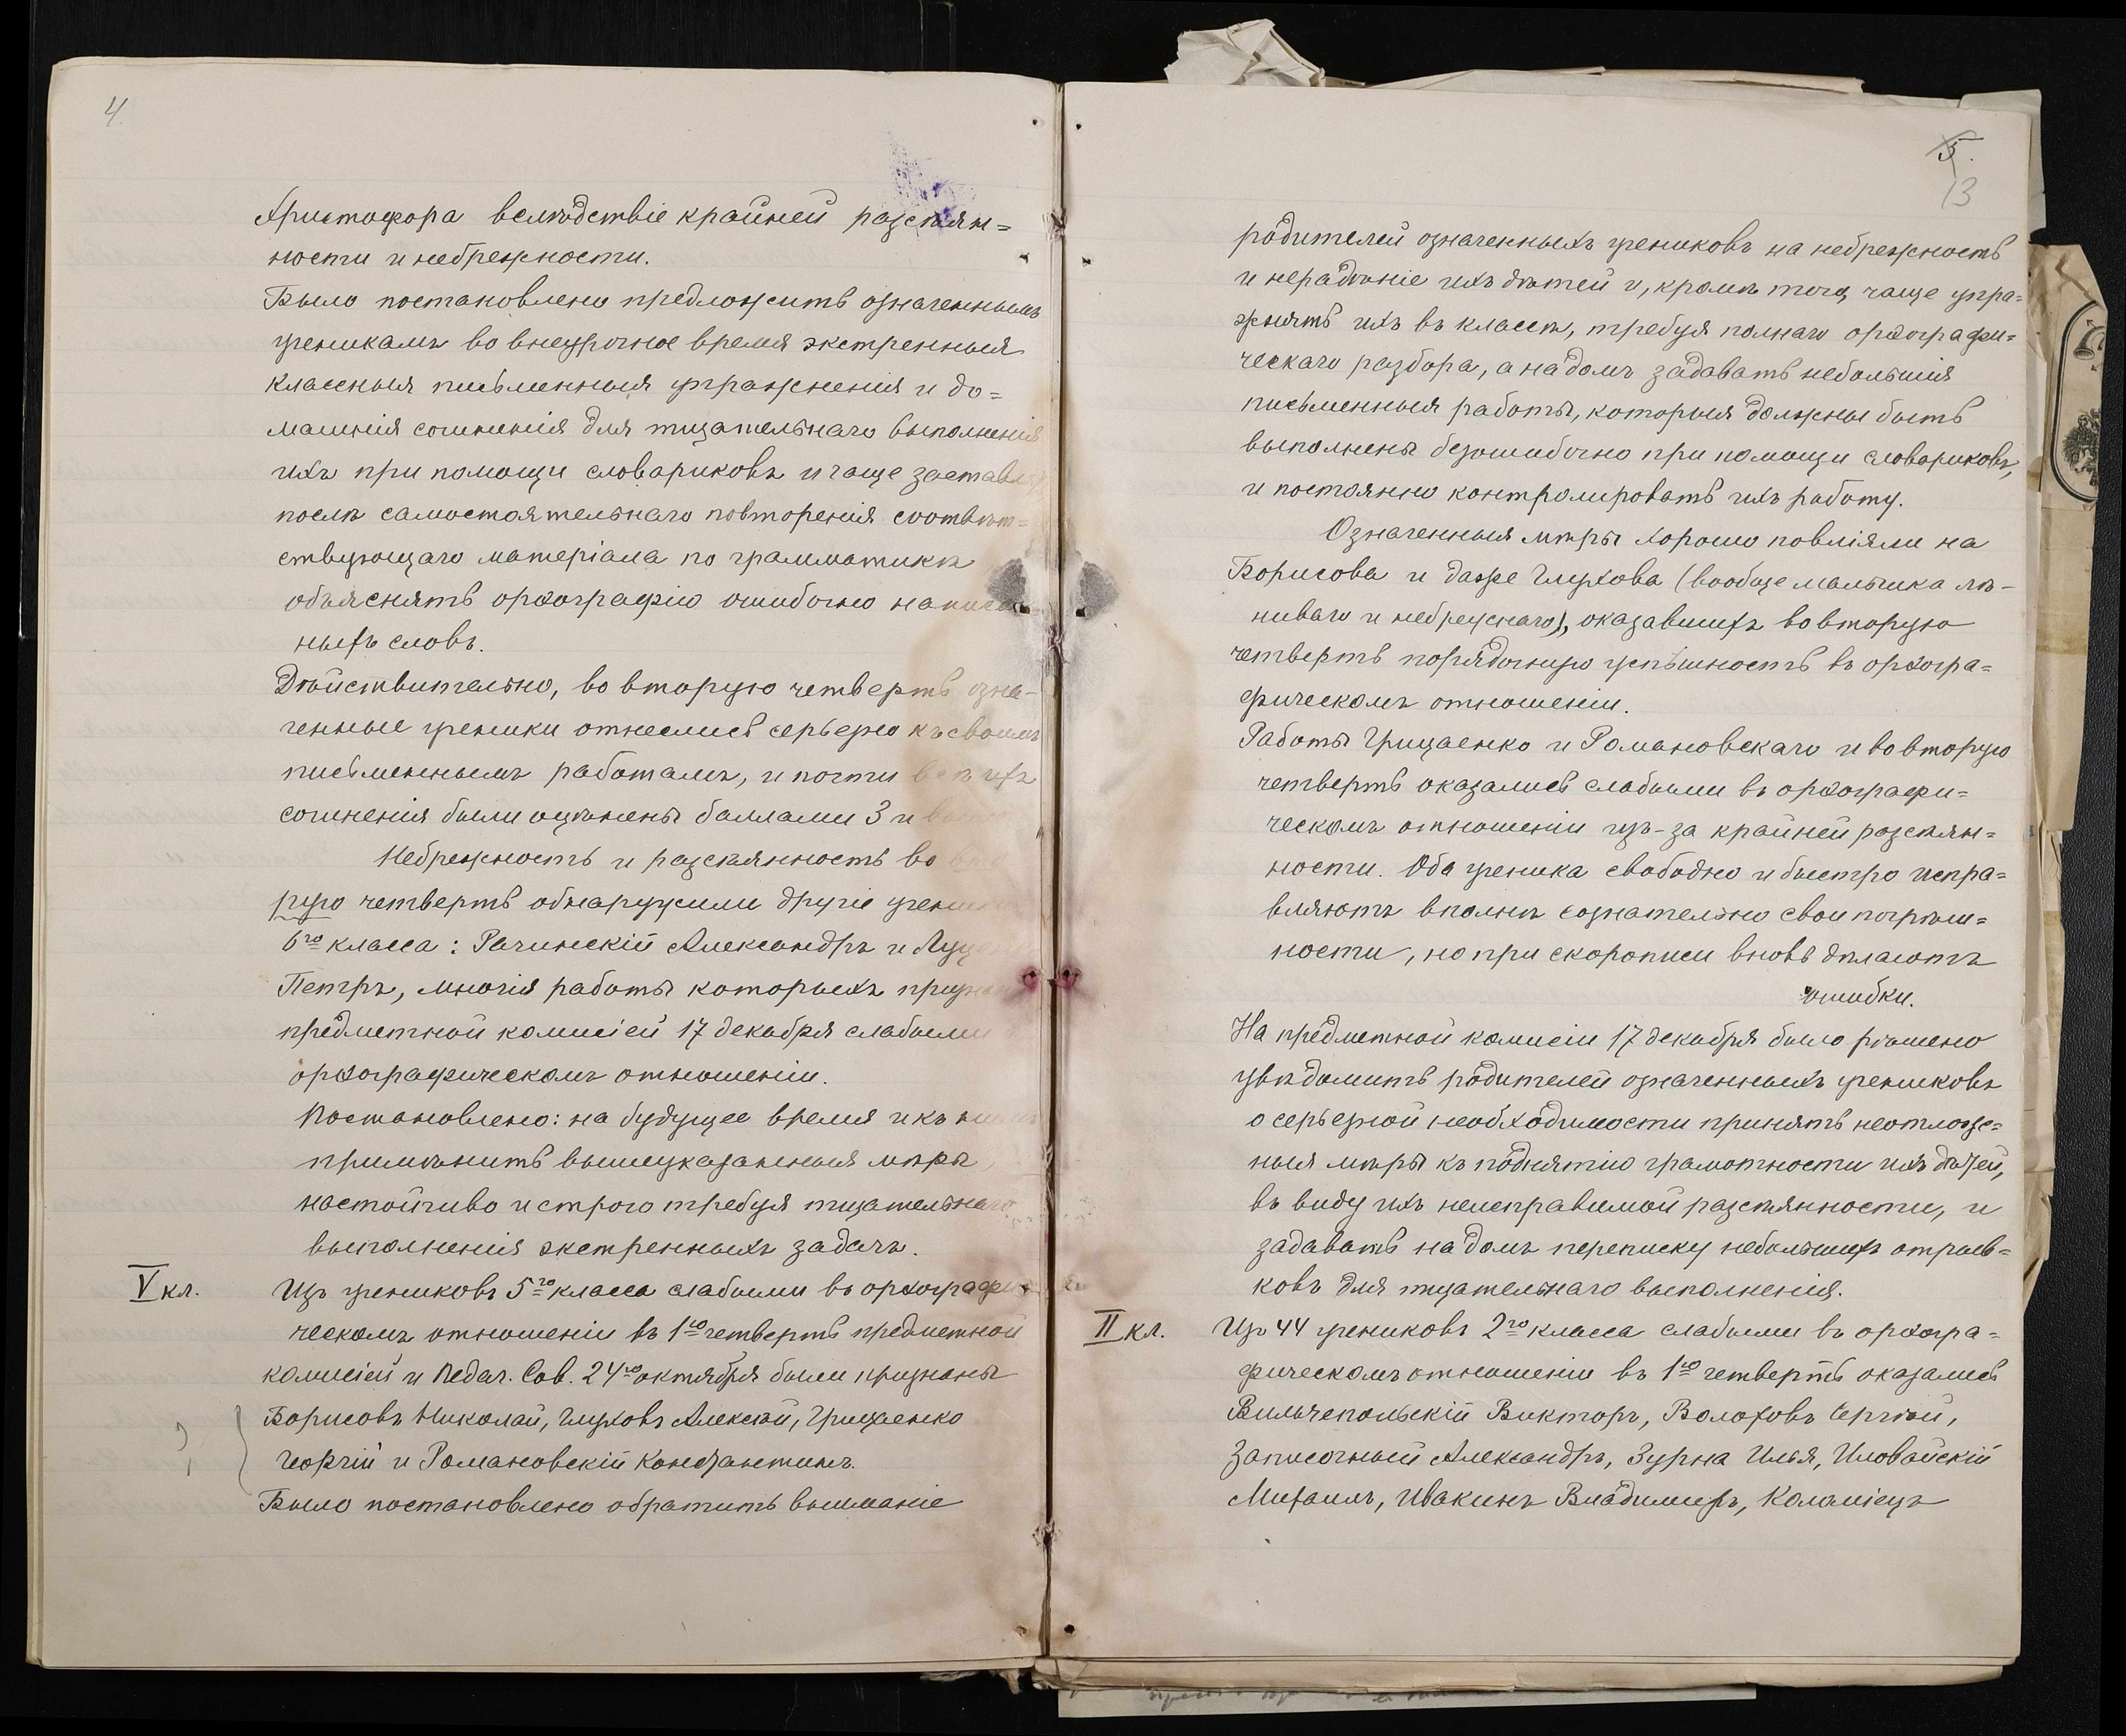 4
Христофора вслѣдствіе крайней разсѣян=
ности и небрежности.
Было постановлено предложить означеннымъ
ученикамъ во внеурочное время экстренныя
классныя письменныя упражненія и до=
машнія сочиненія для тщательнаго выполненія
ихъ при помощи словариковъ и чаще заставлять
послѣ самостоятельнаго повторенія соотвѣт=
ствующаго матеріала по грамматикѣ
объяснять орѳографію ошибочно написан-
ныхъ словъ.
Дѣйствительно, во вторую четверть озна-
ченные ученики отнеслись серьезно къ своимъ
письменнымъ работамъ, и почти всѣ ихъ
сочиненія были оцѣнены баллами 3 и выше
Небрежность и разсѣянность во вто
рую четверть обнаружили другіе ученики
6го класса: Рачинскій Александръ и
Петръ, многія работы которыхъ признаны
предметной комисіей 17 декабря слабыми
орѳографическомъ отношеніи.
Постановлено: на будущее время и къ нимъ
примѣнить вышеуказанныя мѣры,
настойчиво и строго требуя тщательнаго
выполненія экстренныхъ задачъ.
V кл.
Изъ учениковъ 5го класса слабыми въ орѳографи
ческомъ отношеніи въ 1ую четверть предметной
комисіей и Педаг. Сов. 24го октября были признаны
Борисовъ Николай, Глуховъ Алексѣй, Грищенко
Георгій и Романовскій Константинъ.
Было постановлено обратить вниманіе
5.
13
родителей означенныхъ учениковъ на небрежность
и нерадѣніе ихъ дѣтей и, кромѣ того, чаще упра=
жнять ихъ въ классѣ, требуя полнаго орѳографи=
ческаго разбора, а на домъ задавать небольшія
письменныя работы, которыя должны быть
выполнены безошибочно при помощи словариковъ,
и постоянно контролировать ихъ работу.
Означенныя мѣры хорошо повліяли на
Борисова и даже Глухова (вообще мальчика лѣ-
ниваго и небрежнаго), оказавшихъ во вторую
четверть порядочную успѣшность въ орѳогра=
фическомъ отношеніи.
Работы Грищенко и Романовскаго и во вторую
четверть оказались слабыми въ орѳографи=
ческомъ отношеніи изъ-за крайней разсѣян=
ности. Оба ученика свободно и быстро испра=
вляютъ вполнѣ сознательно свои погрѣш=
ности, но при скорописи вновь дѣлаютъ
ошибки.
На предметной комисіи 17 декабря было рѣшено
увѣдомить родителей означенныхъ учениковъ
о серьезной необходимости принять неотлож=
ныя мѣры къ поднятію грамотности ихъ дѣтей,
въ виду ихъ неисправимой разсѣянности, и
задавать на домъ переписку небольшихъ отрыв=
ковъ для тщательнаго выполненія.
II кл.
Изъ 44 учениковъ 2го класса слабыми въ орѳогра=
фическомъ отношеніи въ 1ую четверть оказались
Вильчепольскій Викторъ, Волоховъ Сергѣй,
Записочный Александръ, Зурна Илья, Иловайскій
Михаилъ, Ивакинъ Владимиръ, Коломіецъ